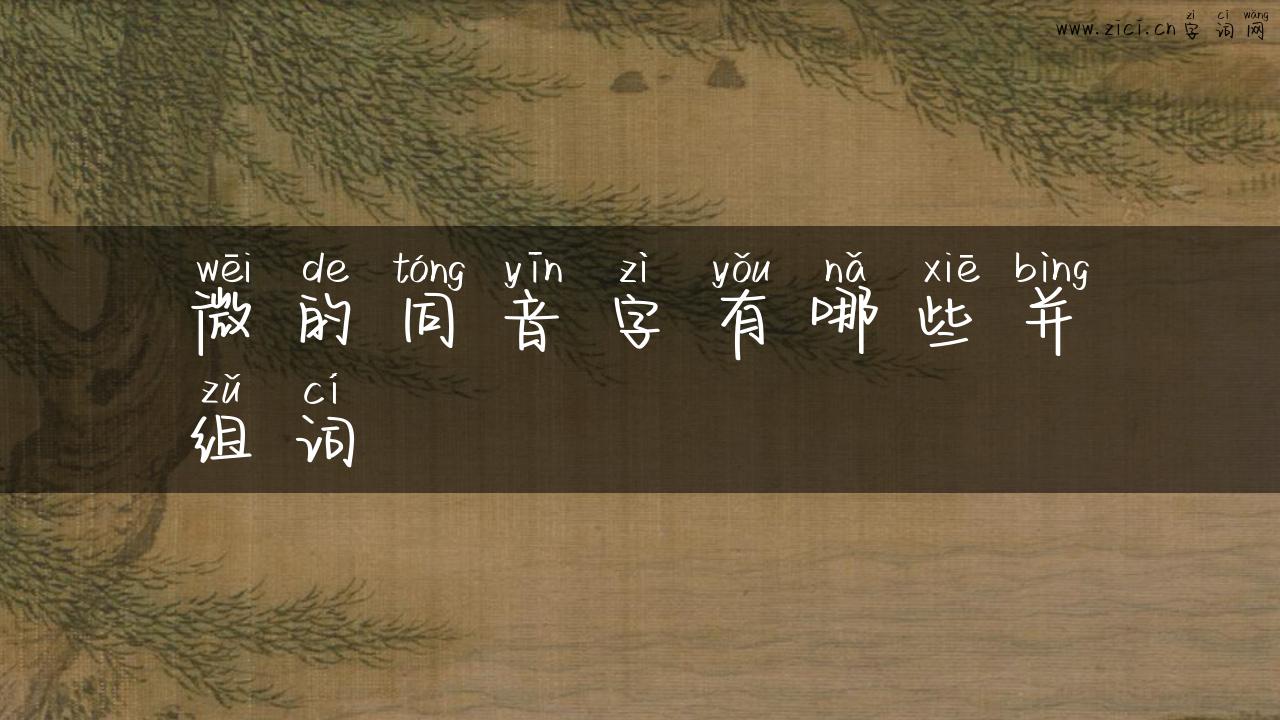 zì cí wǎng
www.zici.cn字词网
wēi de tóng yīn zì yǒu nǎ xiē bìng
微的同音字有哪些并
zǔ cí
组词